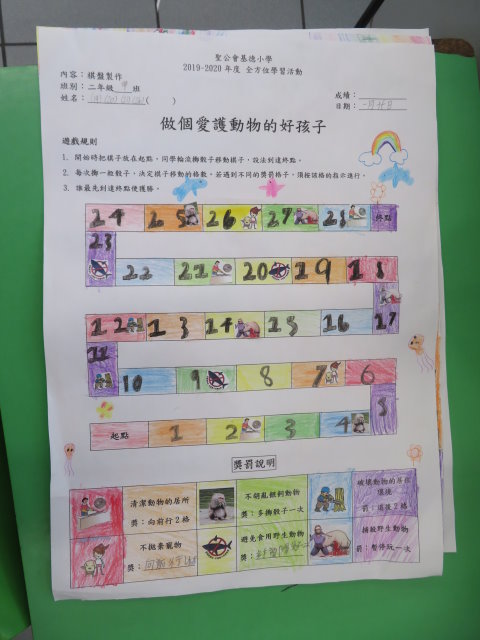 聖公會基德小學
2019-2020 年度 全方位學習活動
內容：棋盤製作
班別：二年級甲班
成績：
姓名：( )
日期：
做個愛護動物的好孩子
遊戲規則
1. 開始時把棋子放在起點，同學輪流擲骰子移動棋子，設法到達終點。
2. 每次擲一般骰子，決定棋子移動的格數。若遇到不同的獎罰格子，須按該格的指示進行。
3. 誰最先到達終點便獲勝。
24 25 26 27 28 終點
23
22 21 20 19 18
17
12 13 14 15 16
11
10 9 8 7 6
5
起點 1 2 3 4
獎罰說明
清潔動物的居所
獎：向前行2格
不胡亂餵飼動物
獎：多擲骰子一次
破壞動物的居住環境
罰：退後2格
不拋棄寵物
獎：
避免食用野生動物
獎：
捕殺野生動物
罰：暫停玩一次